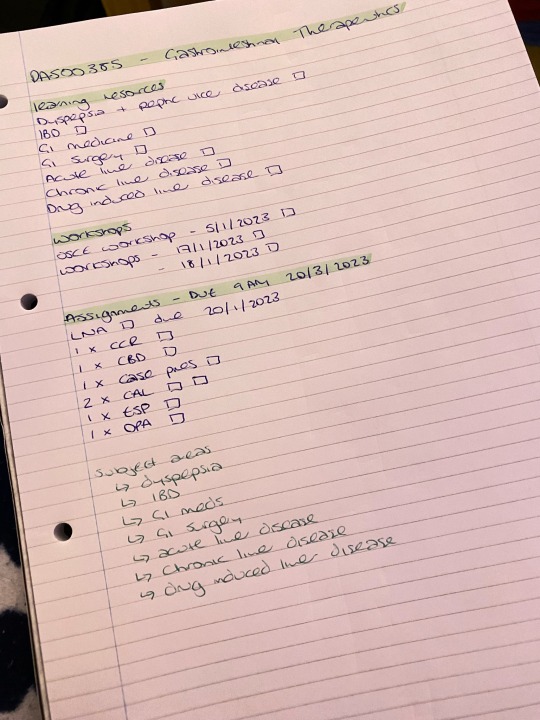 DA500385 - Gastrointestinal Therapeutics
learning resources
Dyspepsia + peptic ulcer disease □
IBD □
GI medicine □
GI Surgery □
Acute liver disease □
Chronic liver disease □
Drug induced liver disease □
workshops
OSCE workshop - 5/1/2023 □
workshops - 17/1/2023 □
- 18/1/2023 □
Assignments - DUE 9AM 20/3/2023
LNA □ due 20/1/2023
1 x CCR □
1 x CBD □
1 x Case pres □
2 x CAL □ □
1 x ESP □
1 x OPA □
Subject areas
↳ dyspepsia
↳ IBD
↳ GI meds
↳ GI surgery
↳ acute liver disease
↳ Chronic liver disease
↳ drug induced liver disease